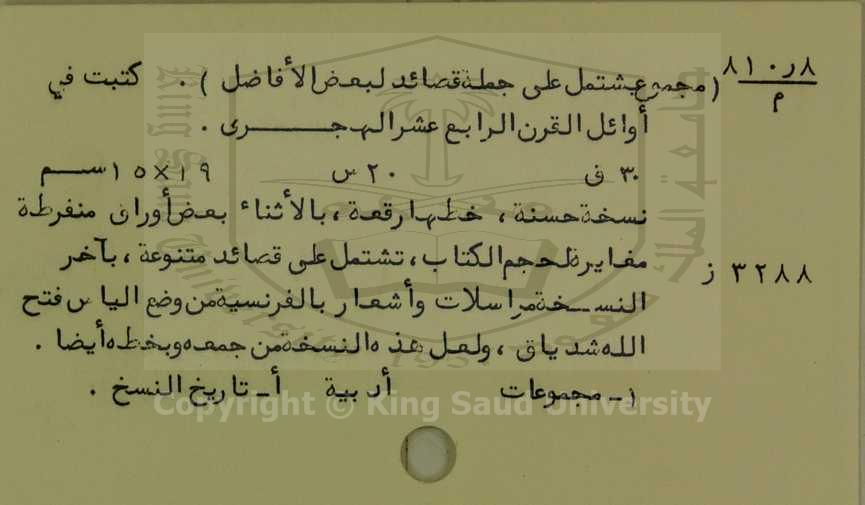 ٨١٠٫٨
م
(مجموع يشتمل على جملة قصائد لبعض الأفاضل) . كتبت في
أوائل القرن الرابع عشر الهجرى .
٣٠ ق ٢٠ س ١٩×١٥ سم
نسخة حسنة ، خطها رقعة ، بالأثناء بعض أوراق منفرطة
٣٢٨٨ ز
مغايرة لحجم الكتاب ، تشتمل على قصائد متنوعة ، بآخر
النسخة مراسلات وأشعار بالفرنسية من وضع الياس فتح
الله شدياق ، ولعل هذه النسخة من جمعه وبخطه أيضا .
١- مجموعات أدبية أ- تاريخ النسخ .
Copyright © King Saud University